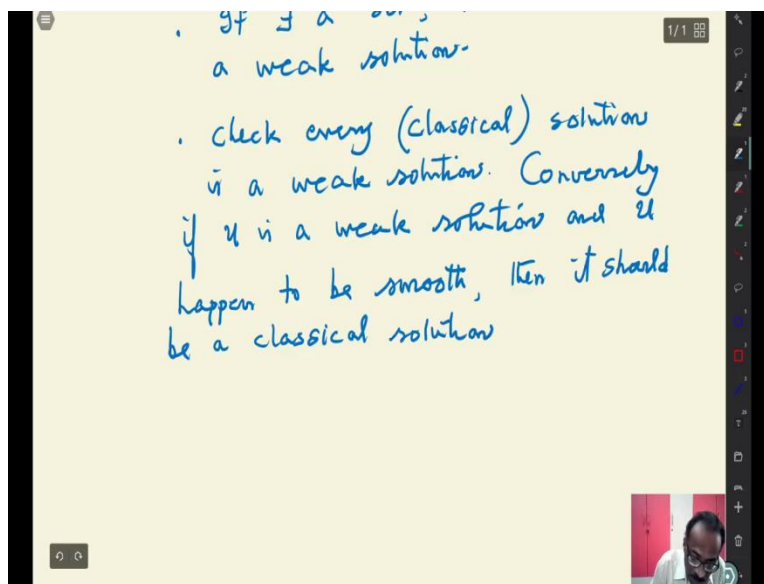 . If ∃ a
a weak solution.
1/1
. check every (classical) solution
is a weak solution. Conversely
if u is a weak solution and u
happen to be smooth, then it should
be a classical solution